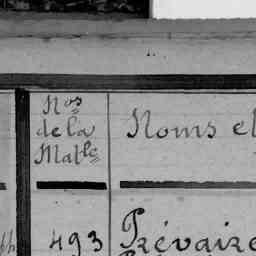 Nos
de la
Matle
Noms et
493
Prévaire